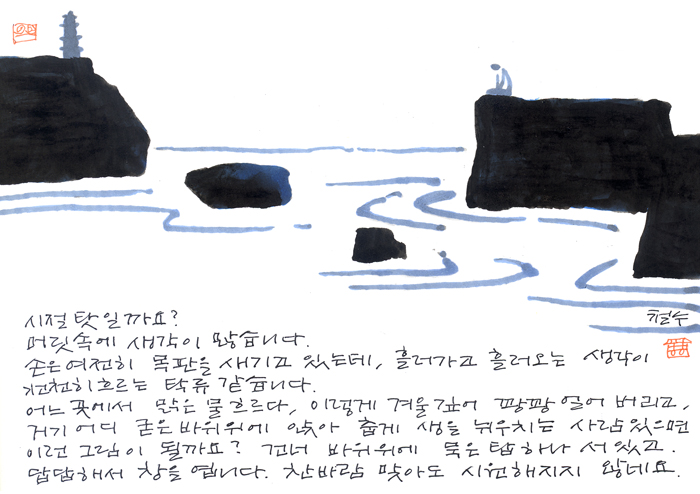 철수
시절 탓일까요?
머릿속에 생각이 많습니다.
손은 여전히 목판을 새기고 있는데, 흘러가고 흘러오는 생각이
천천히 흐르는 탁류 같습니다.
어느 곳에서 맑은 물 흐르다, 이렇게 겨울 깊어 꽝꽝 얼어 버리고,
거기 어디 굳은 바위위에 앉아 춥게 생을 뉘우치는 사람 있으면
이런 그림이 될까요? 건너 바위위에 묵은 탑 하나 서있고.
답답해서 창을 엽니다. 찬바람 맞아도 시원해지지 않네요.